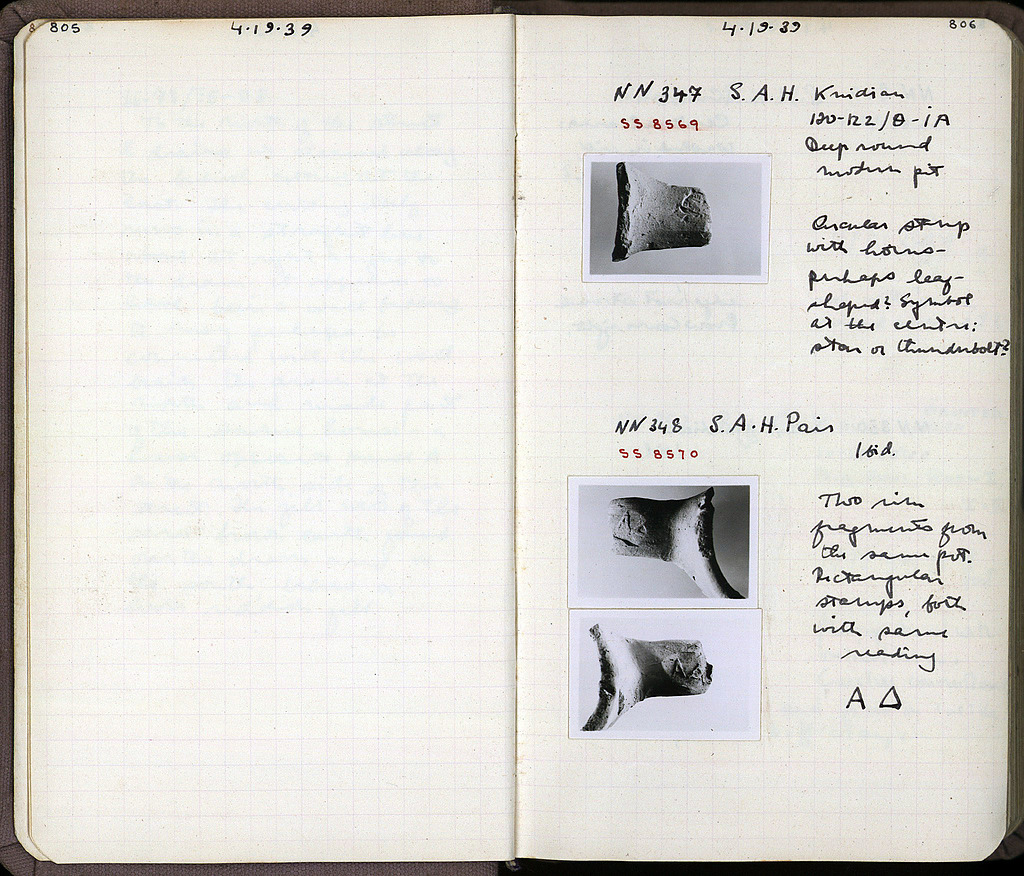 805
4·19·39
4·19·39
806
NN 347 S.A.H. Knidian
SS 8569
120-122/Θ-ΙΑ
Deep round
modern pit
Circular stamp
with horns-
perhaps leaf-
shaped? Symbol
at the centre:
star or thunderbolt?
NN 348 S.A.H. Pair
SS 8570
Ibid.
Two rim
fragments from
the same pot.
Rectangular
stamps, both
with same
reading
Α Δ